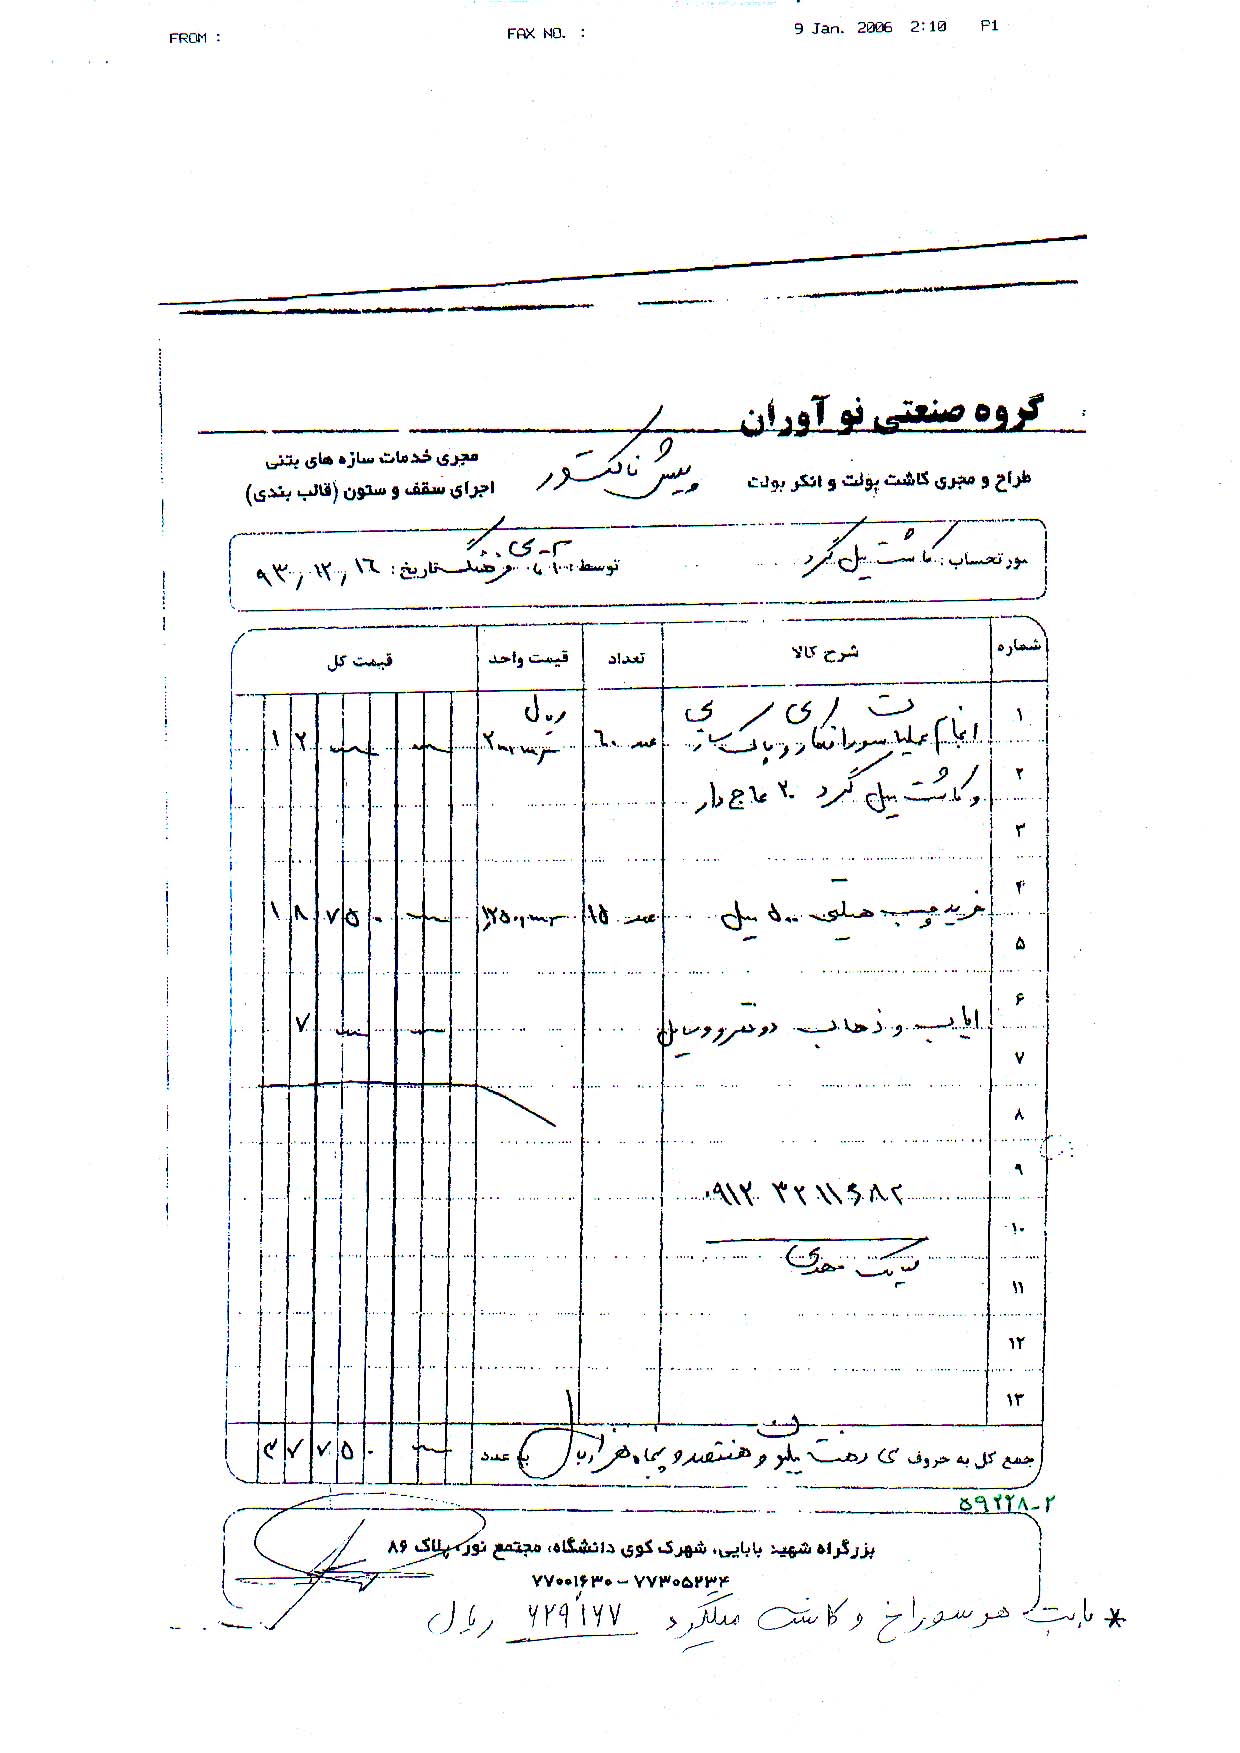 FROM :
FAX NO. :
9 Jan. 2006 2:10 P1
گروه صنعتی نو آوران
پیش فاکتور
طراح و مجری کاشت بولت و انکر بولت
مجری خدمات سازه های بتنی
اجرای سقف و ستون (قالب بندی)
صورتحساب: کاشت میل گرد توسط: فرهنگ تاریخ: ۹۳/۱۲/۱۶
شماره شرح کالا تعداد قیمت واحد قیمت کل
ریال
۱ انجام عملیات سوراخکاری و پاکسازی ۶۰ عدد
۲ و کاشت میل گرد ۲۰ عاج دار
۳
۴ خرید چسب هیلتی ۵۰۰ میل ۱۵ عدد
۵
۶ ایاب و ذهاب دو نفر و وسایل
۷
۸
۹ ۰۹۱۲ ۳۲۱۱۶۸۲
۱۰
۱۱ مهدی
۱۲
۱۳
جمع کل به حروف سی و هفت میلیون و هفتصد و پنجاه هزار ریال به عدد
۵۹۲۲۸-۲
بزرگراه شهید بابایی، شهرک کوی دانشگاه، مجتمع نور، پلاک ۸۶
۷۷۰۰۱۶۳۰ – ۷۷۳۰۵۲۳۴
* بابت هر سوراخ و کاشت میلگرد ۶۲۹٬۱۶۷ ریال